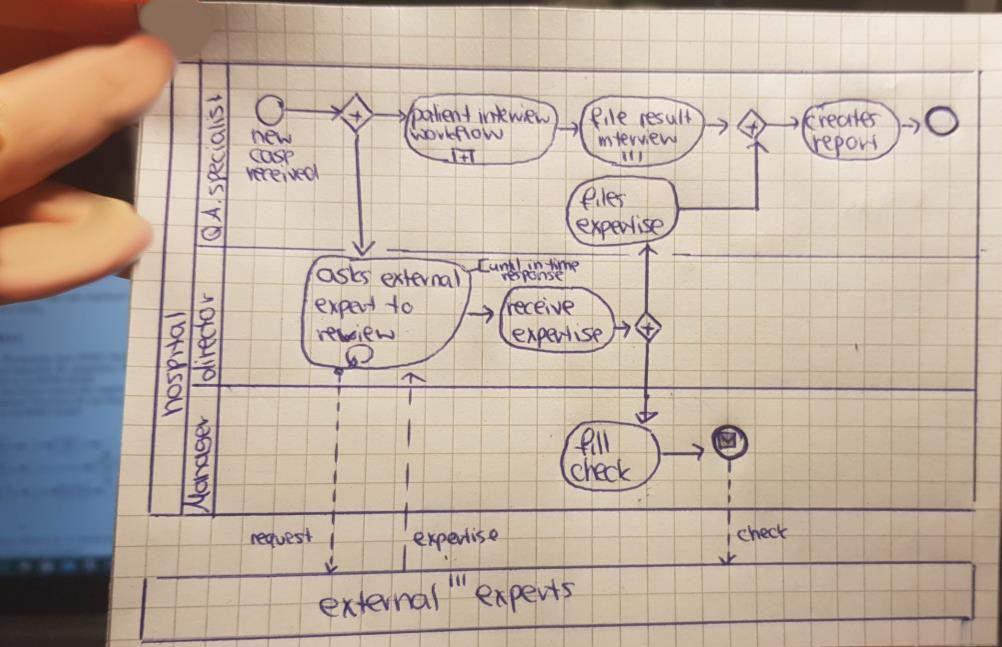 hospital
Q.A. specialist
new
case
received
patient interview
workflow
file result
interview
creates
report
files
expertise
director
asks external
expert to
review
until in-time
response
receive
expertise
Manager
fill
check
request
expertise
check
external experts